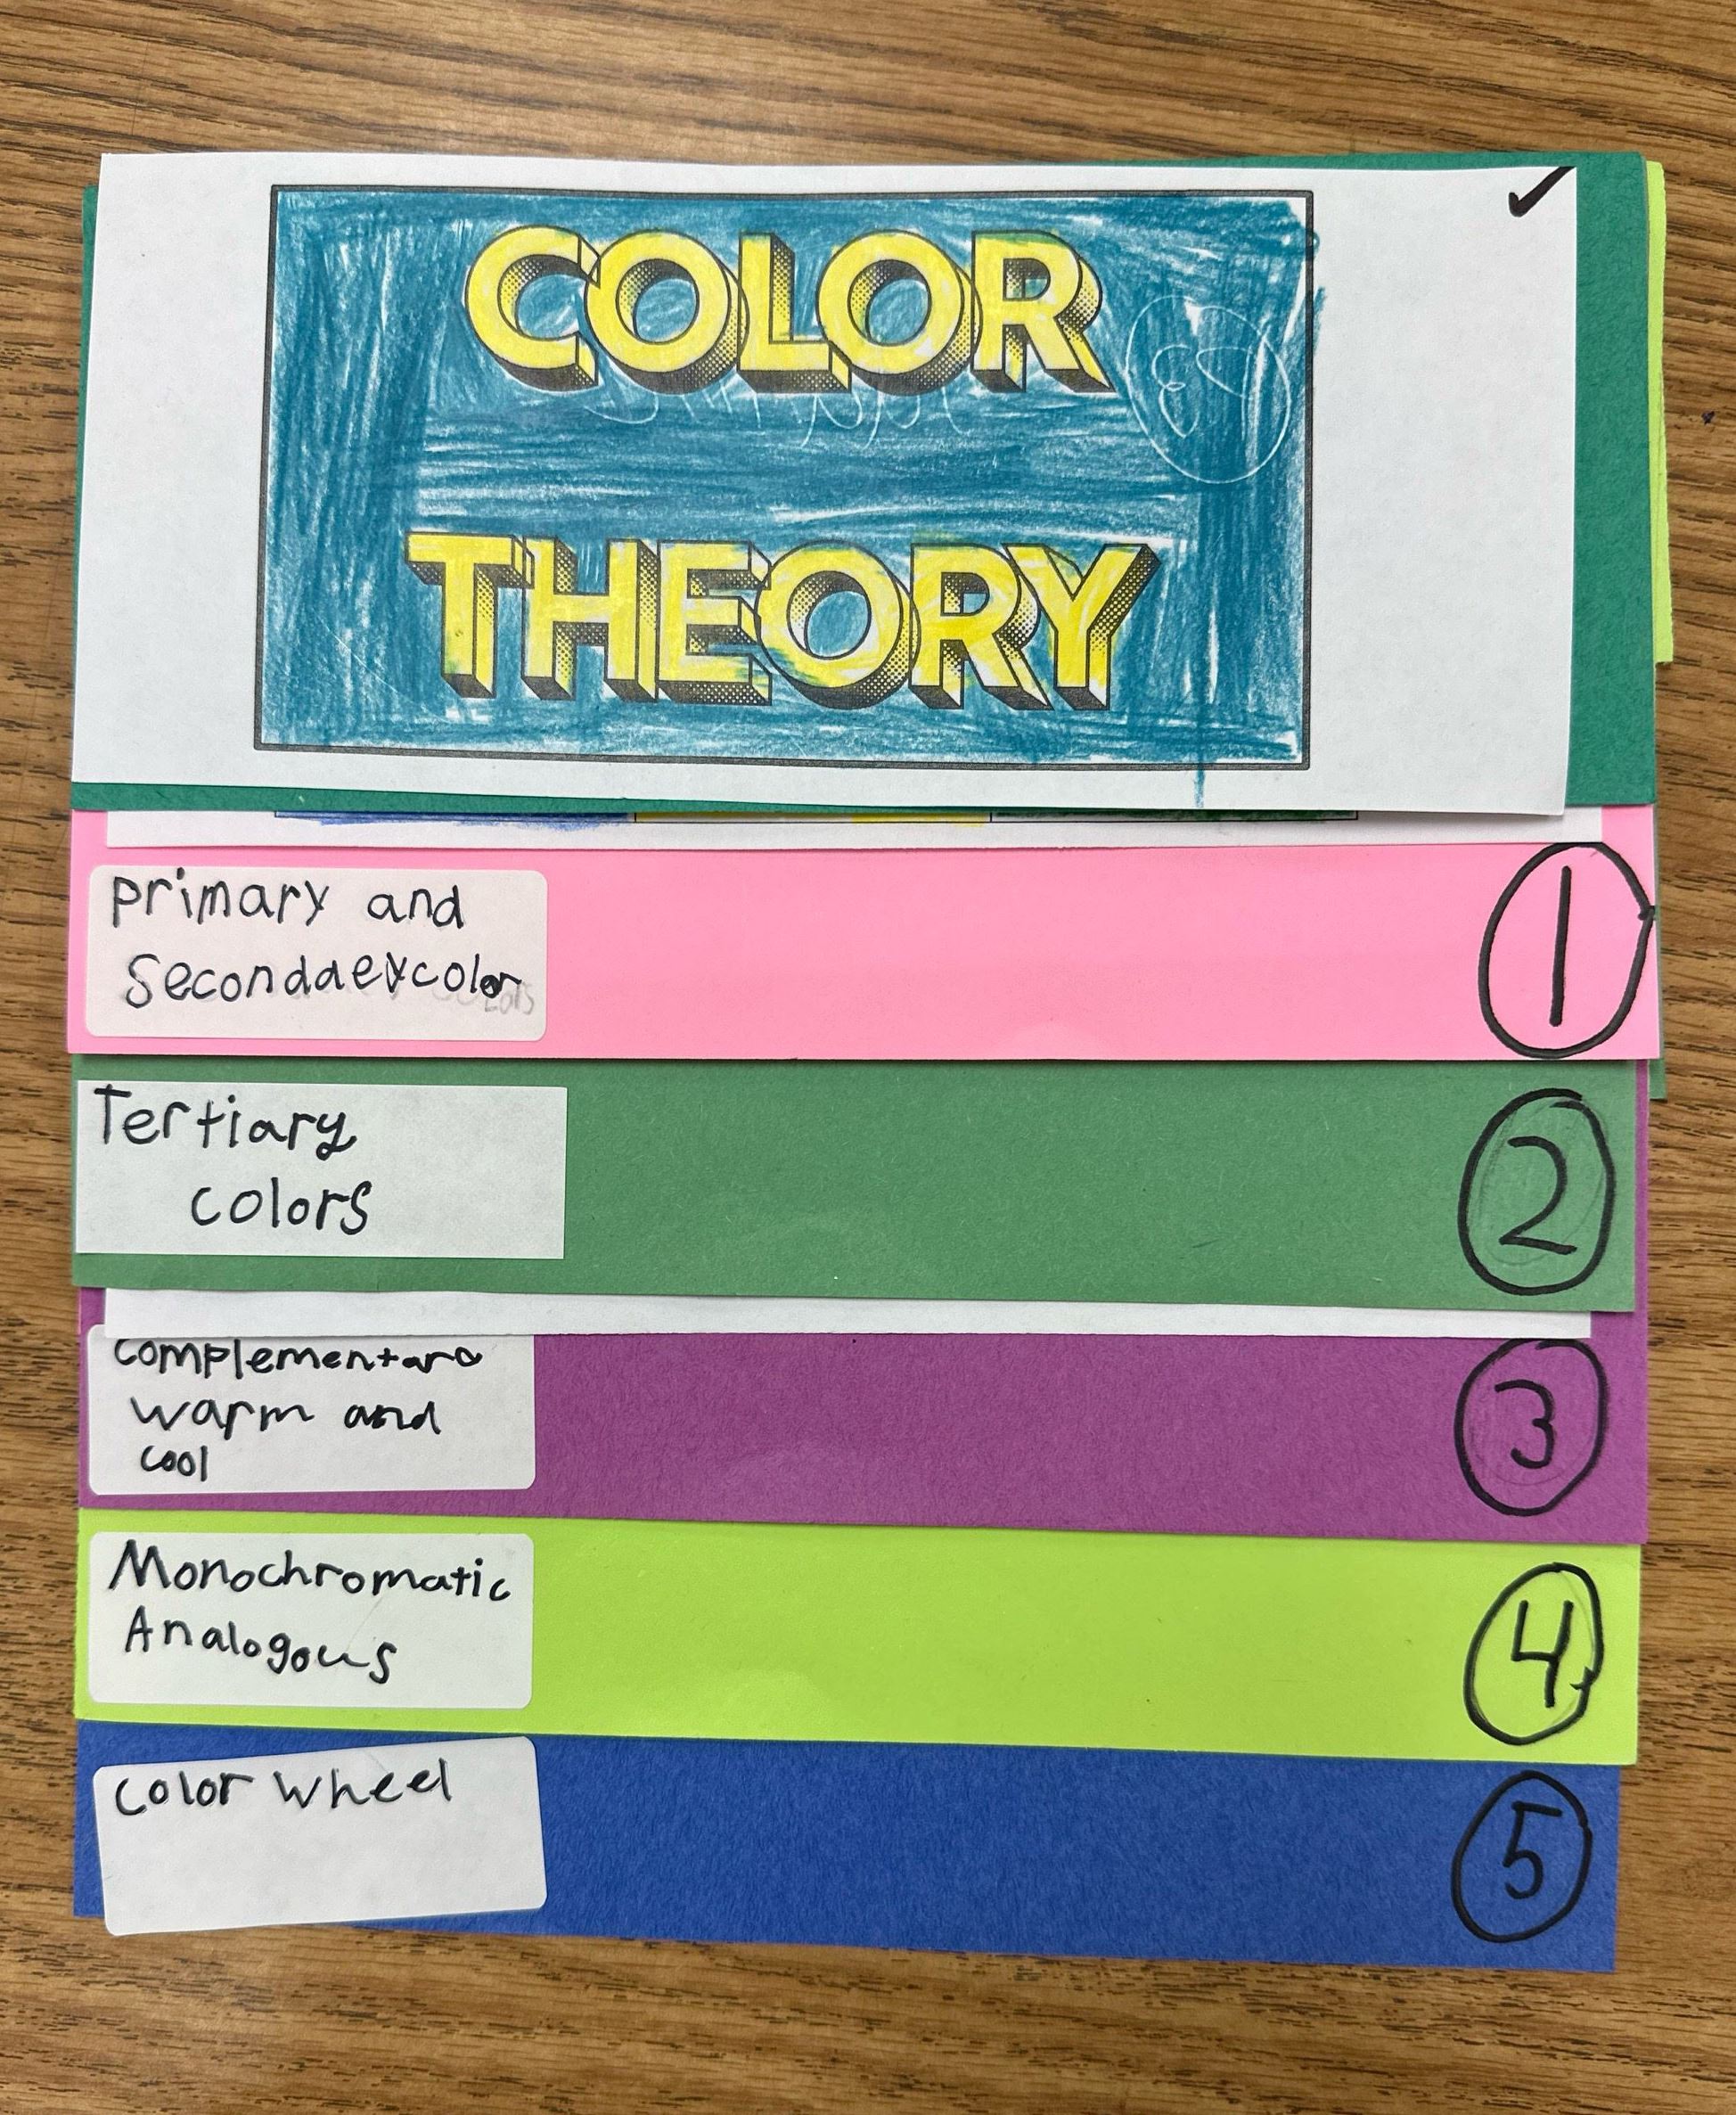 COLOR
THEORY
primary and
Secondaey color
1
Tertiary
colors
2
complementara
warm and
cool
3
Monochromatic
Analogous
4
color wheel
5